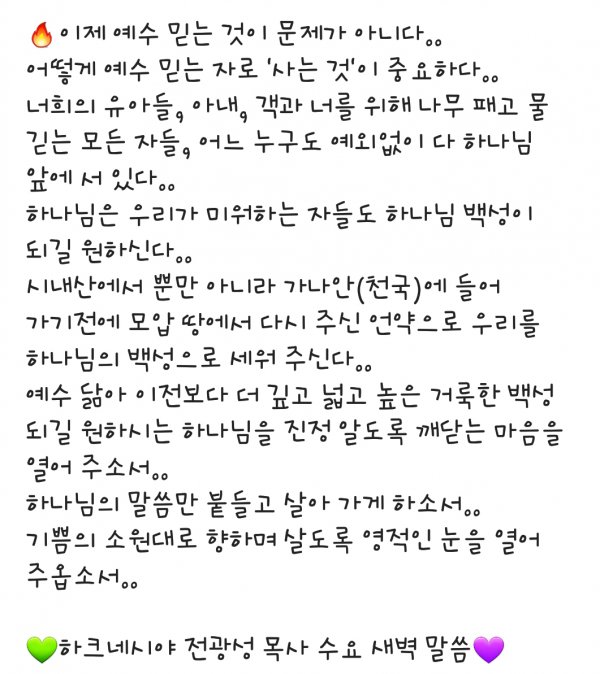 🔥이제 예수 믿는 것이 문제가 아니다。。
어떻게 예수 믿는 자로 '사는 것'이 중요하다。。
너희의 유아들, 아내, 객과 너를 위해 나무 패고 물
긷는 모든 자들, 어느 누구도 예외없이 다 하나님
앞에 서 있다。。
하나님은 우리가 미워하는 자들도 하나님 백성이
되길 원하신다。。
시내산에서 뿐만 아니라 가나안(천국)에 들어
가기전에 모압 땅에서 다시 주신 언약으로 우리를
하나님의 백성으로 세워 주신다。。
예수 닮아 이전보다 더 깊고 넓고 높은 거룩한 백성
되길 원하시는 하나님을 진정 알도록 깨닫는 마음을
열어 주소서。。
하나님의 말씀만 붙들고 살아 가게 하소서。。
기쁨의 소원대로 향하며 살도록 영적인 눈을 열어
주옵소서。。
💚하크네시야 전광성 목사 수요 새벽 말씀💜